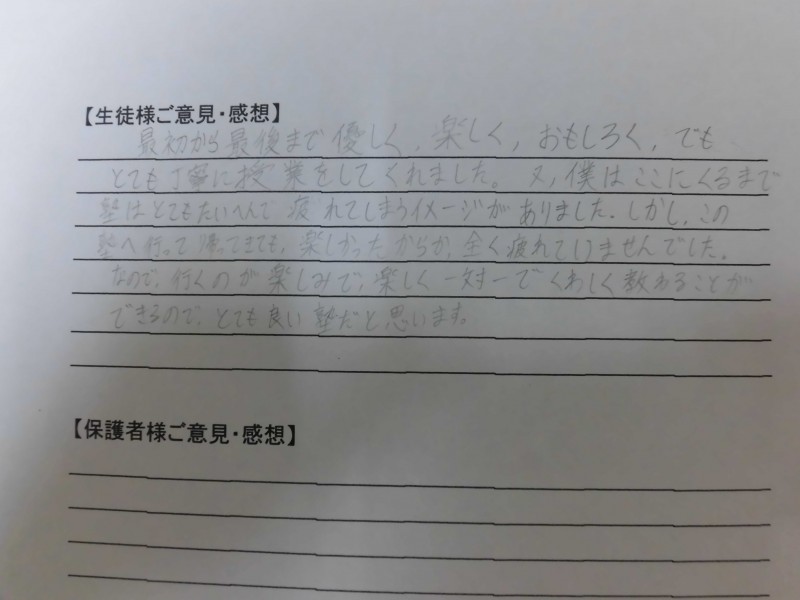 【生徒様ご意見・感想】
最初から最後まで優しく、楽しく、おもしろく、でも
とても丁寧に授業をしてくれました。又、僕はここにくるまで
塾はとてもたいへんで疲れてしまうイメージがありました。しかし、この
塾へ行って帰ってきても、楽しかったからか、全く疲れていませんでした。
なので、行くのが楽しみで、楽しく一対一でくわしく教わることが
できるので、とても良い塾だと思います。
【保護者様ご意見・感想】